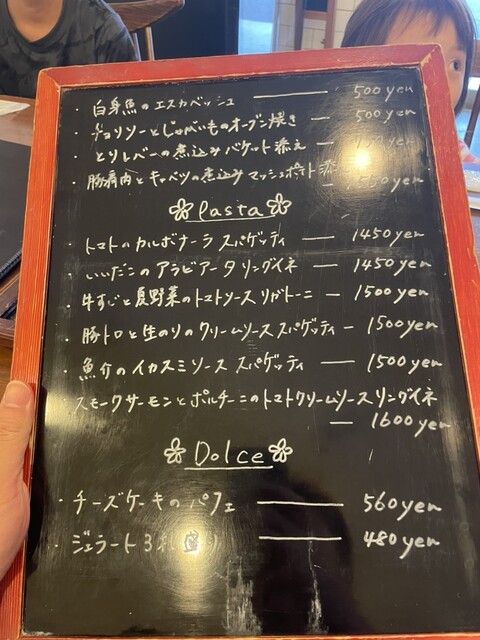 ・白身魚のエスカベッシュ ―― 500yen
・チョリソーとじゃがいものオーブン焼き ― 500yen
・とりレバーの煮込み バケット添え
・豚肩肉とキャベツの煮込み マッシュポテト添
Pasta
・トマトのカルボナーラ スパゲッティ ― 1450yen
・いいだこのアラビアータ リングイネ ― 1450yen
・牛すじと夏野菜のトマトソース リガトーニ ― 1500yen
・豚トロと生のりのクリームソース スパゲッティ ― 1500yen
・魚介のイカスミソース スパゲッティ ― 1500yen
・スモークサーモンとポルチーニのトマトクリームソース リングイネ
― 1600yen
Dolce
・チーズケーキのパフェ ―― 560yen
・ジェラート3 ―― 480yen